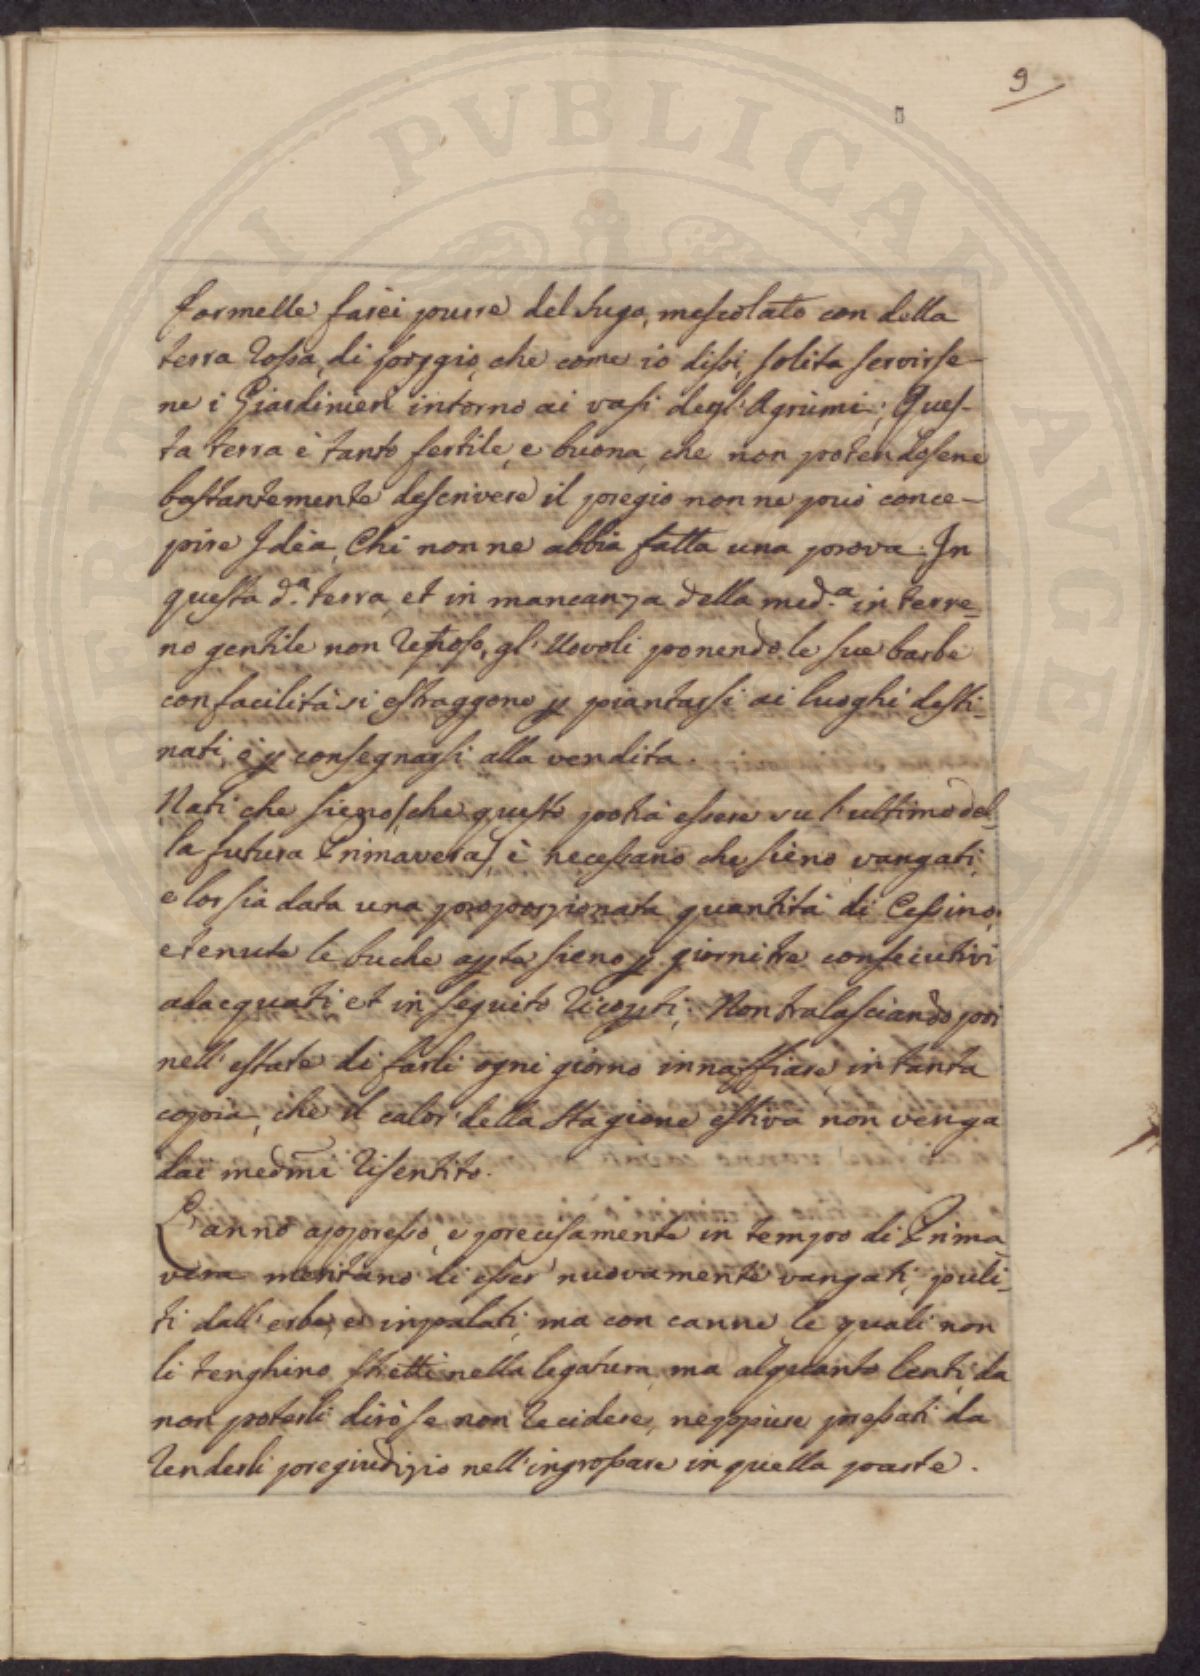 9
formelle farei porre del Sugo, mescolato con della
terra rossa, di poggio, che come io dissi, solita servirse-
ne i Giardinieri intorno ai vasi degl'Agrumi; Ques-
ta terra è tanto fertile, e buona, che non potendosene
bastantemente descrivere il pregio non ne può conce-
pire Idèa, Chi non ne abbia fatta una prova. In
questa d.ª terra, et in mancanza della med.ª in terre-
no gentile non, gl'Uovoli ponendo le sue barbe
con facilità si estraggono p piantarsi ai luoghi desti-
nati, e p consegnarsi alla vendita.
Nati che sieno (che questo potrà essere su l'ultimo del-
la futura Primavera) è necessario che sieno vangati,
e lor sia data una proporzionata quantità di Cessino,
e tenute le buche apte sieno p giorni tre consecutivi
adacquati, et in seguito ricopti; Non tralasciando poi
nell'estate di farli ogni giorno innaffiare, in tanta
copia, che il calor della stagione estiva non venga
dai medmi risentito.
L'anno appresso, e precisamente in tempo di Prima
vera meritano di esser nuovamente vangati, puli-
ti dall'erbe, ed inpalati, ma con canne, le quali non
li tenghino stretti nella legatura, ma alquanto lenti, da
non poterli dirò se non recidere, neppure pressati da
renderli pregiudizio nell'ingrossare in quella parte.
PVBLICAE
AVGENDAE